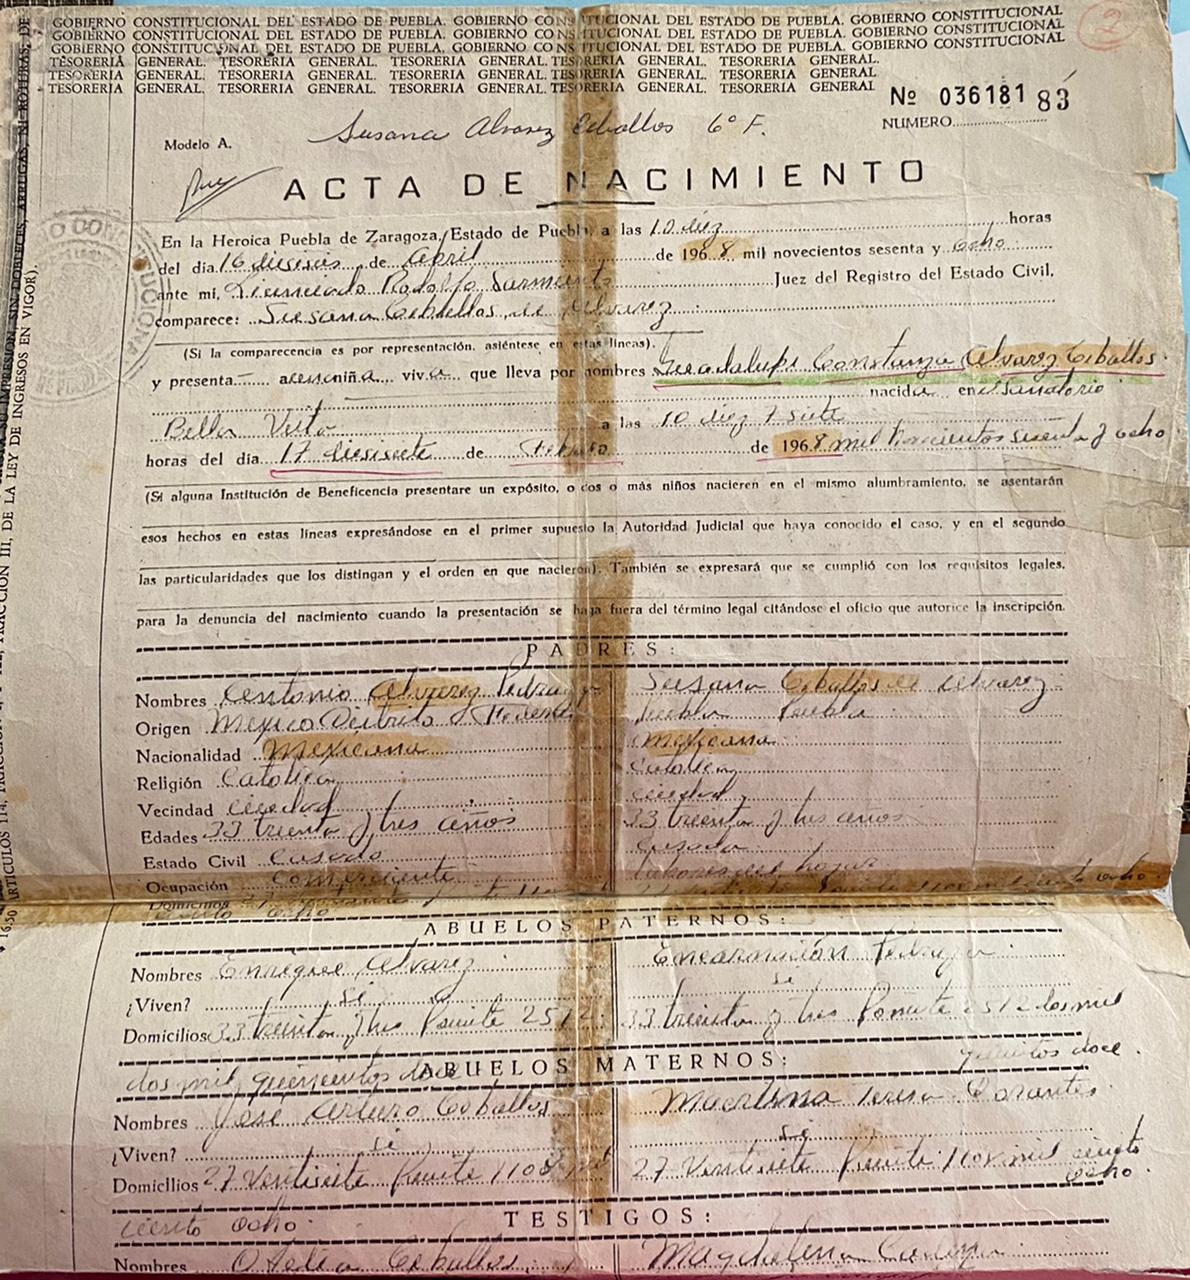 GOBIERNO CONSTITUCIONAL DEL ESTADO DE PUEBLA. GOBIERNO CONSTITUCIONAL DEL ESTADO DE PUEBLA. GOBIERNO CONSTITUCIONAL
GOBIERNO CONSTITUCIONAL DEL ESTADO DE PUEBLA. GOBIERNO CONSTITUCIONAL DEL ESTADO DE PUEBLA. GOBIERNO CONSTITUCIONAL
GOBIERNO CONSTITUCIONAL DEL ESTADO DE PUEBLA. GOBIERNO CONSTITUCIONAL DEL ESTADO DE PUEBLA. GOBIERNO CONSTITUCIONAL
TESORERIA GENERAL. TESORERIA GENERAL. TESORERIA GENERAL. TESORERIA GENERAL. TESORERIA GENERAL.
TESORERIA GENERAL. TESORERIA GENERAL. TESORERIA GENERAL. TESORERIA GENERAL. TESORERIA GENERAL.
TESORERIA GENERAL. TESORERIA GENERAL. TESORERIA GENERAL. TESORERIA GENERAL. TESORERIA GENERAL
2
Nº 036181 83
NUMERO
Modelo A. Susana Alvarez Ceballos 6º F.
ACTA DE NACIMIENTO
En la Heroica Puebla de Zaragoza, Estado de Puebla, a las 10 diez horas
del día 16 dieciseis de abril de 1968 mil novecientos sesenta y ocho
ante mi, Licenciado Rodolfo Sarmiento Juez del Registro del Estado Civil,
comparece: Susana Ceballos de Alvarez
(Si la comparecencia es por representación, asiéntese en estas líneas).
y presenta a niña viva que lleva por nombres Guadalupe Constanza Alvarez Ceballos
nacida en Sanatorio
Bella Vista a las 10 diez y siete
horas del día 17 diesisiete de Febrero de 1968 mil novecientos sesenta y ocho
(Si alguna Institución de Beneficencia presentare un expósito, o dos o más niños nacieren en el mismo alumbramiento, se asentarán
esos hechos en estas líneas expresándose en el primer supuesto la Autoridad Judicial que haya conocido el caso, y en el segundo
las particularidades que los distingan y el orden en que nacieron). También se expresará que se cumplió con los requisitos legales,
para la denuncia del nacimiento cuando la presentación se haga fuera del término legal citándose el oficio que autorice la inscripción.
PADRES:
Nombres Antonio Alvarez Pedraza Susana Ceballos de Alvarez
Origen Mexico Distrito Federal Puebla Puebla
Nacionalidad Mexicana mexicana
Religión Catolica Catolica
Vecindad ciudad ciudad
Edades 33 treinta y tres años 33 treinta y tres años
Estado Civil Casado casada
Ocupación Comerciante labores del hogar
Domicilios ciento ocho
ABUELOS PATERNOS:
Nombres Enrique Alvarez Encarnación Pedraza
¿Viven? si si
Domicilios 33 treinta y tres Poniente 2512 33 treinta y tres Poniente 2512 dos mil
dos mil quinientos doce quinientos doce.
ABUELOS MATERNOS:
Nombres José Arturo Ceballos Teresa
¿Viven? si si
Domicilios 27 Ventisiete Poniente 1108 mil 27 Ventisiete Poniente 1108 mil ciento
ciento ocho. ocho.
TESTIGOS:
Nombres Ofelia Ceballos Magdalena